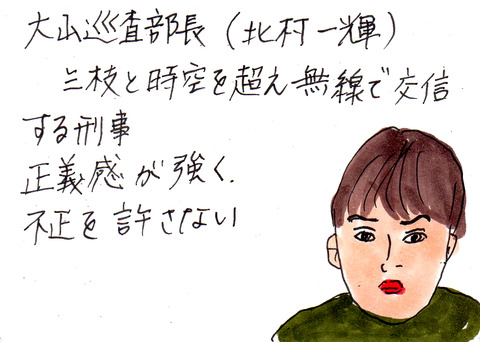 大山巡査部長（北村一輝）
三枝と時空を超え無線で交信
する刑事
正義感が強く.
不正を許さない